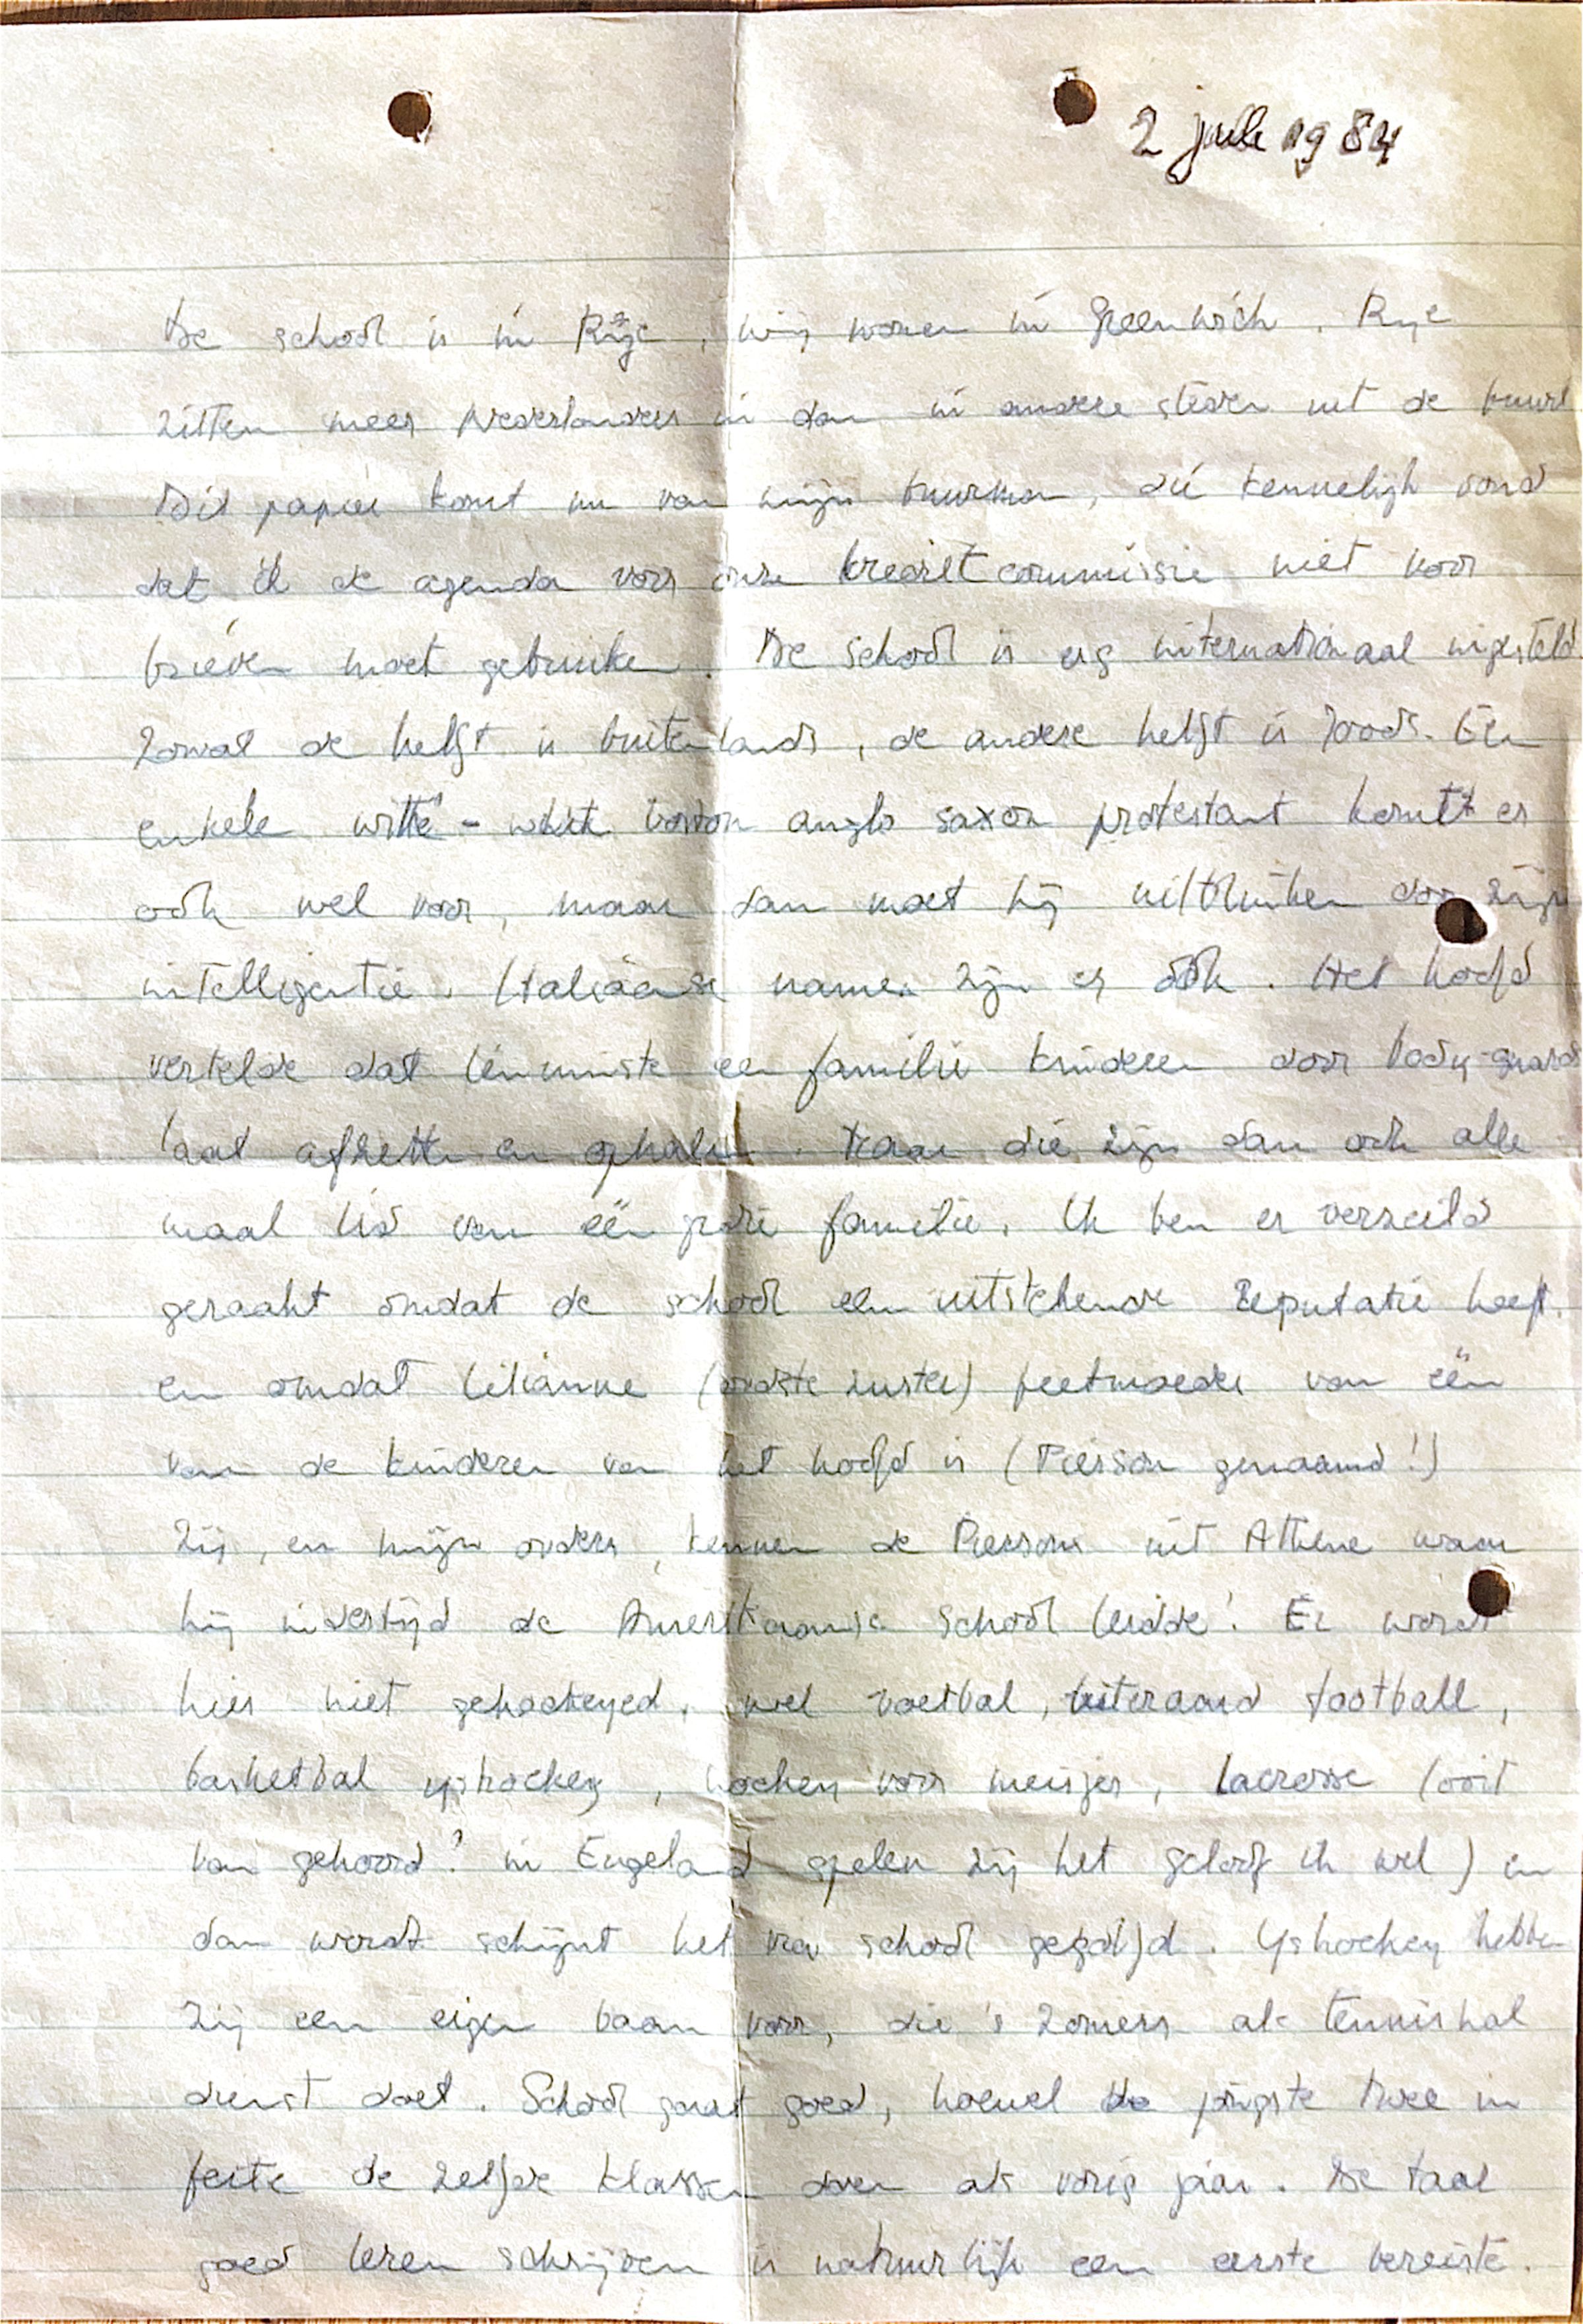 2 juli 1984
De school is in Rije, wij wonen in Greenwich. Rye
zitten meer Nederlanders in dan in andere steden uit de buurt
Dit papier komt nu van mijn buurman, die kennelijk vond
dat ik de agenda voor onze kredietcommissie niet voor
brieven moet gebruiken. De school is erg internationaal ingesteld.
Zowat de helft is buitenlands, de andere helft is Joods. Een
enkele witte - white anglo saxon protestant komt er
ook wel voor, maar dan moet hij uitblinken door zijn
intelligentie. Italiaanse namen zijn er óók. Het hoofd
vertelde dat tenminste een familie kinderen door body-guards
laat afzetten en ophalen. Maar die zijn dan ook alle
maal lid van één grote familie. Ik ben er verzeild
geraakt omdat de school een uitstekende reputatie heeft.
en omdat Lilianne (oudste zuster) peetmoeder van één
van de kinderen van het hoofd is (Pierson genaamd!)
Zij, en mijn ouders, kennen de Piersons uit Athene waar
hij indertijd de Amerikaanse school leidde! Er wordt
hier niet gehockeyed, wel voetbal, uiteraard football,
basketbal ijshockey, hockey voor meisjes, lacrosse (ooit
van gehoord? in Engeland spelen zij het geloof ik wel) en
dan wordt schijnt het van school gegolfd. Yshockey hebben
zij een eigen baan voor, die 's zomers als tennishal
dienst doet. School gaat goed, hoewel de jongste twee in
feite de zelfde klassen doen als vorig jaar. De taal
goed leren schrijven is natuurlijk een eerste vereiste.